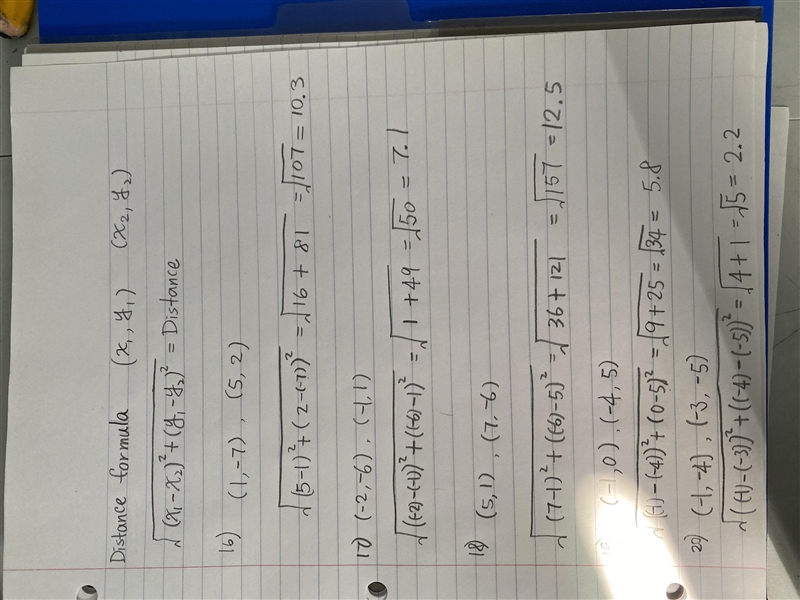 Distance formula (x₁, y₁) (x₂, y₂)
√((x₁-x₂)²+(y₁-y₂)²) = Distance
16) (1,-7), (5, 2)
√((5-1)²+(2-(-7))²) = √(16 + 81) = √107 = 10.3
17) (-2, -6), (-1, 1)
√((-2)-(-1))²+((-6)-1)² = √(1 + 49) = √50 = 7.1
18) (5, 1), (7, -6)
√((7-1)²+((-6)-5)²) = √(36 + 121) = √157 = 12.5
19) (-1, 0), (-4, 5)
√((-1)-(-4))²+(0-5)² = √(9+25) = √34 = 5.8
20) (-1, -4), (-3, -5)
√((-1)-(-3))²+((-4)-(-5))² = √(4+1) = √5 = 2.2